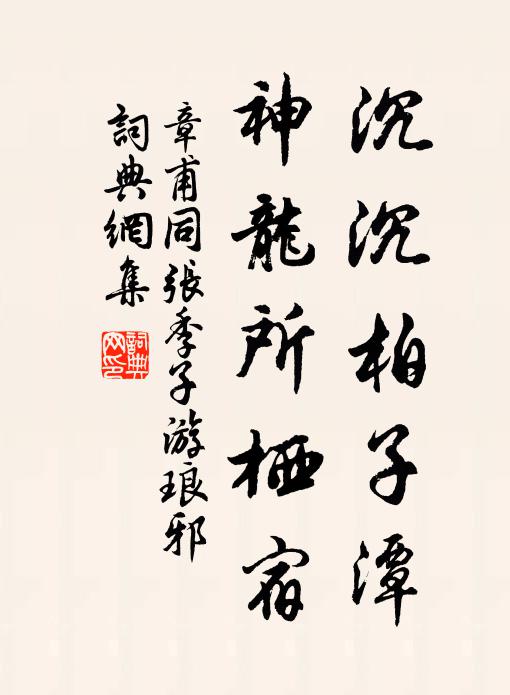 沉沉柏子潭
神龍所栖宿
章甫同張季子游琅邪
詞典網集
詞典網印